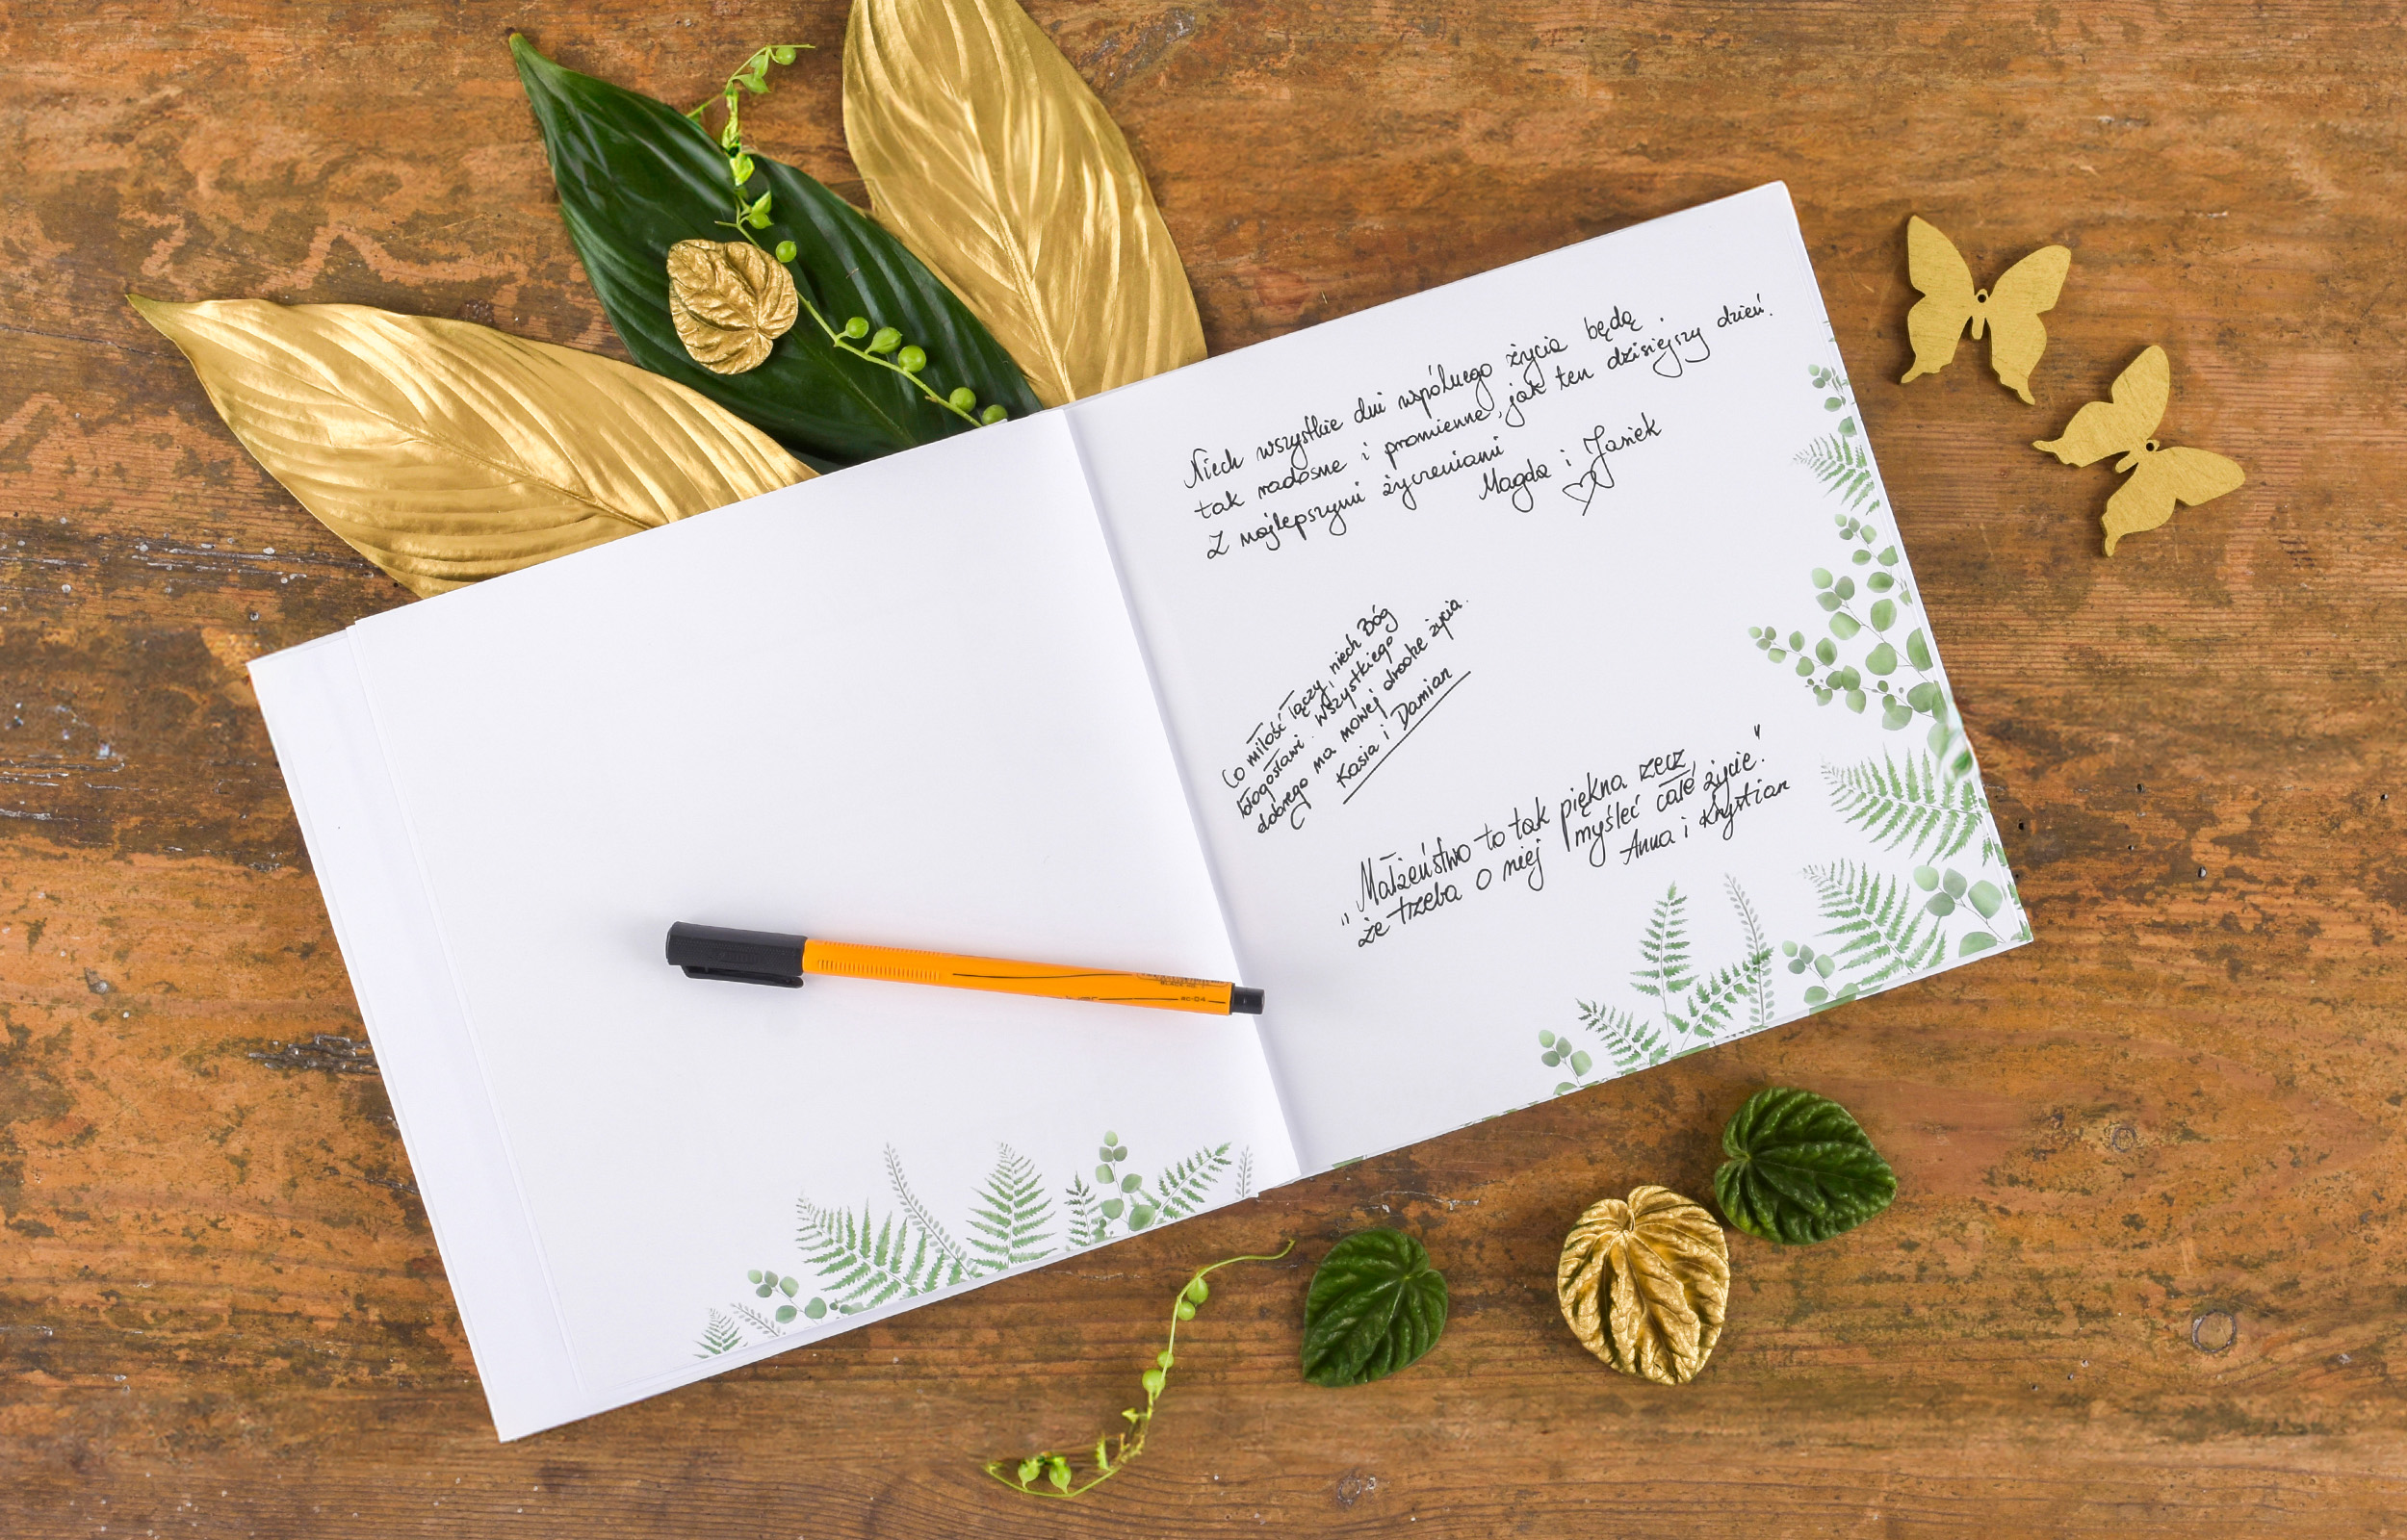 Niech wszystkie dni wspólnego życia będą
tak radosne i promienne, jak ten dzisiejszy dzień.
Z najlepszymi życzeniami
Magda i Janek
Co miłość łączy, niech Bóg
błogosławi. Wszystkiego
dobrego na nowej drodze życia.
Kasia i Damian
„Małżeństwo to tak piękna rzecz,
że trzeba o niej myśleć całe życie."
Anna i Krystian